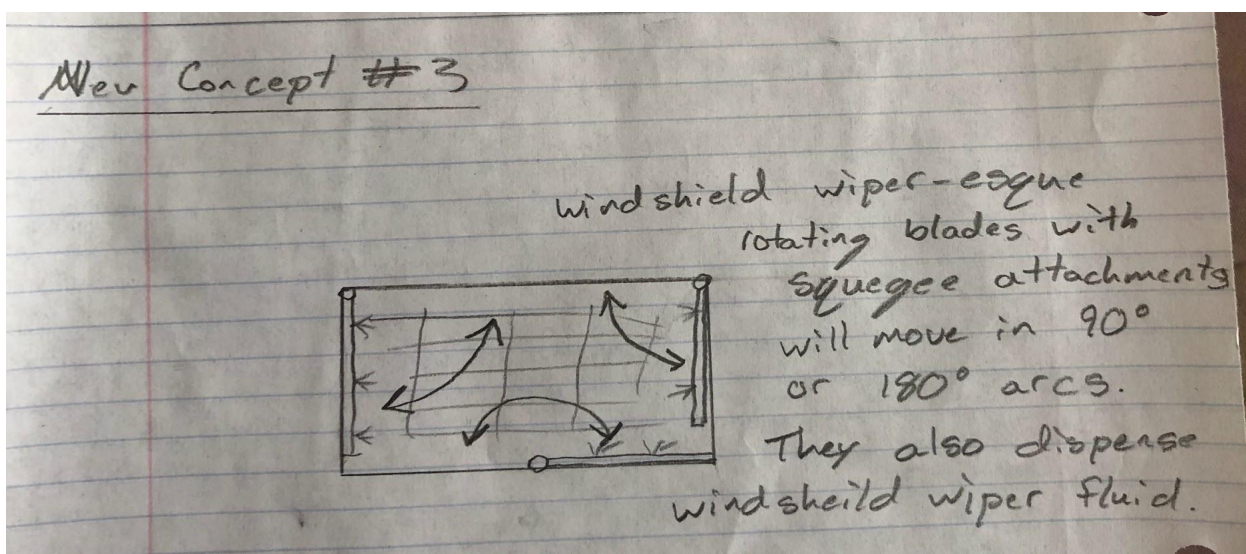 New Concept #3
windshield wiper-esque
rotating blades with
squegee attachments
will move in 90°
or 180° arcs.
They also dispense
windsheild wiper fluid.